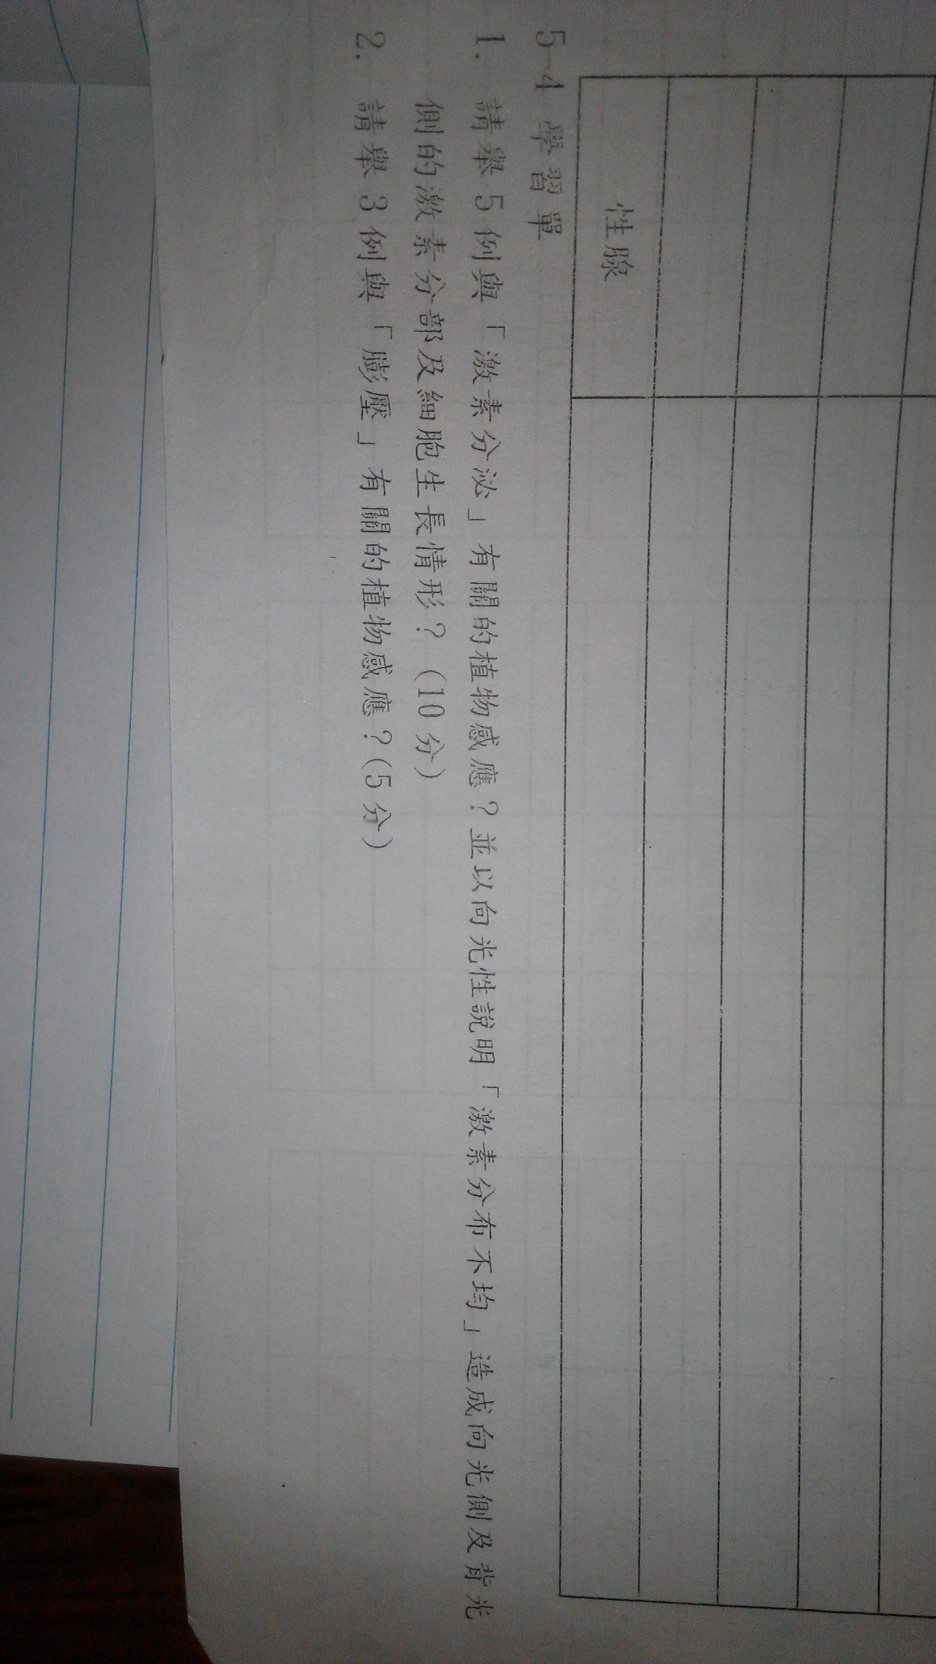 性腺
5-4 學習單
1. 請舉 5 例與「激素分泌」有關的植物感應？並以向光性說明「激素分布不均」造成向光側及背光
側的激素分部及細胞生長情形？(10 分)
2. 請舉 3 例與「膨壓」有關的植物感應？(5 分)